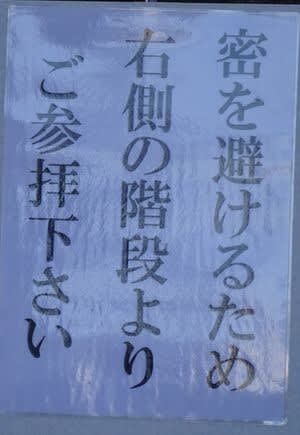 密を避けるため
右側の階段より
ご参拝下さい